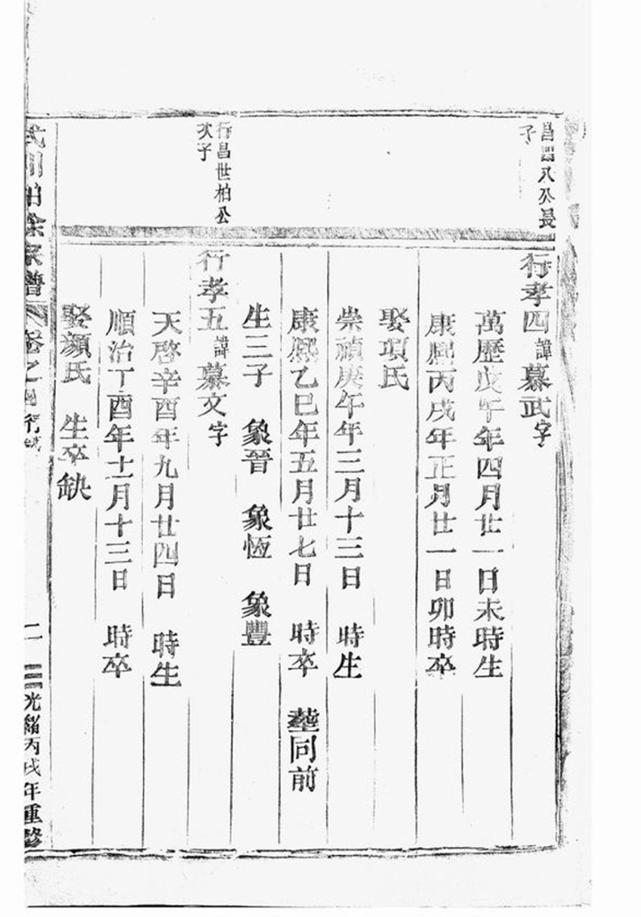 昌八公長
子
行孝四諱慕武字
萬歷戊午年四月廿一日未時生
康熙丙戌年正月廿一日卯時卒
娶項氏
崇禎庚午年三月十三日 時生
康熙乙巳年五月廿七日 時卒 塟同前
生三子 象晉 象恆 象豐
行昌世柏公
次子
行孝五諱慕文字
天啓辛酉年九月廿四日 時生
順治丁酉年十一月十三日 時卒
娶顏氏 生卒缺
川柏徐譜 卷之 二 光緒丙戌年重